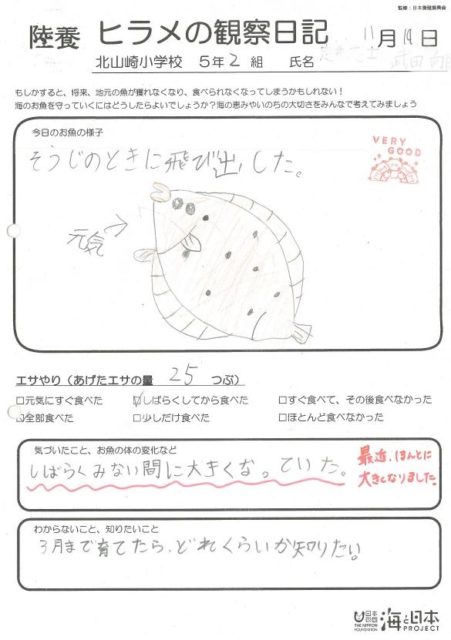 監修：日本養殖振興会
陸養 ヒラメの観察日記 11月19日
北山崎小学校 5年2組 氏名
もしかすると、将来、地元の魚が獲れなくなり、食べられなくなってしまうかもしれない！
海のお魚を守っていくにはどうしたらよいでしょうか？海の恵みやいのちの大切さをみんなで考えてみましょう
今日のお魚の様子
そうじのときに飛び出した。
VERY GOOD
元気
エサやり（あげたエサの量 25 つぶ）
□元気にすぐ食べた ☑しばらくしてから食べた □すぐ食べて、その後食べなかった
☑全部食べた □少しだけ食べた □ほとんど食べなかった
気づいたこと、お魚の体の変化など
しばらくみない間に大きくなっていた。
最近、ほんとに
大きくなりました。
わからないこと、知りたいこと
3月まで育てたら、どれくらいか知りたい。
日本財団
THE NIPPON FOUNDATION
海と日本
PROJECT